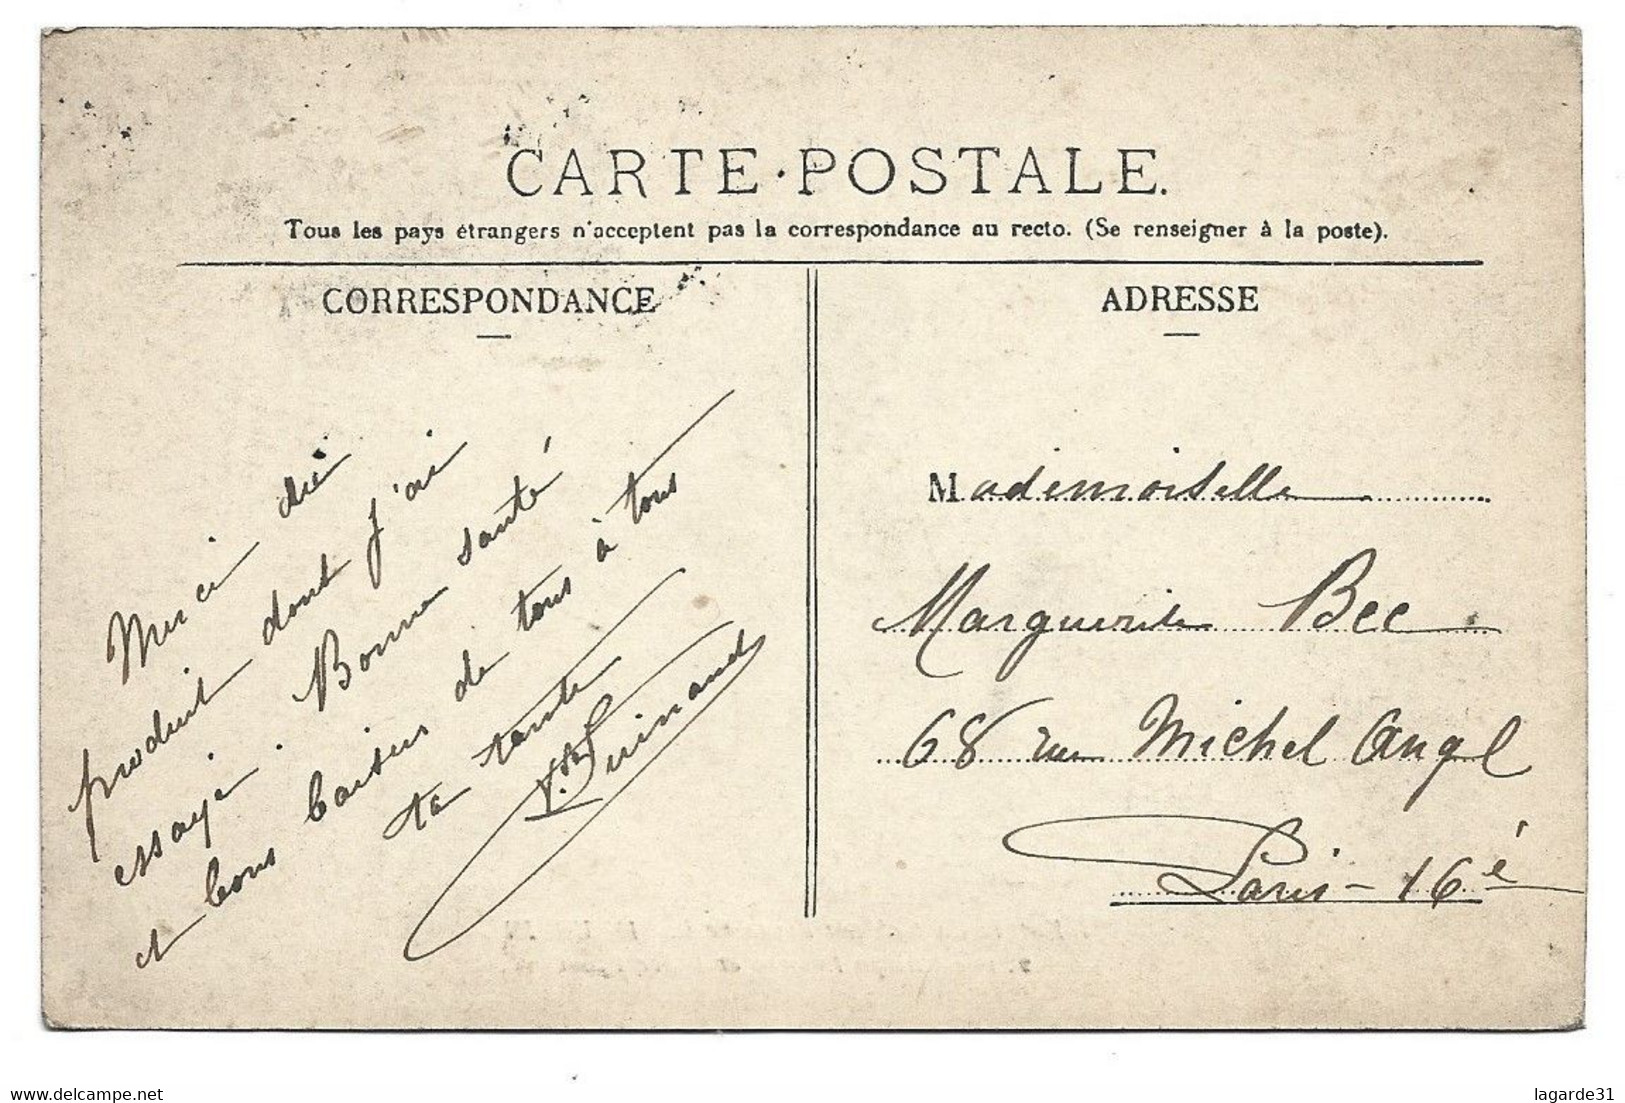 CARTE POSTALE.
Tous les pays étrangers n'acceptent pas la correspondance au recto. (Se renseigner à la poste).
CORRESPONDANCE
Merci du
produit dont j'ai
essayé. Bonne santé
et bons baisers de tous à tous
ta tante
Guinand
ADRESSE
Mademoiselle
Marguerite Bec
68 rue Michel Ange
Paris - 16è
lagarde31